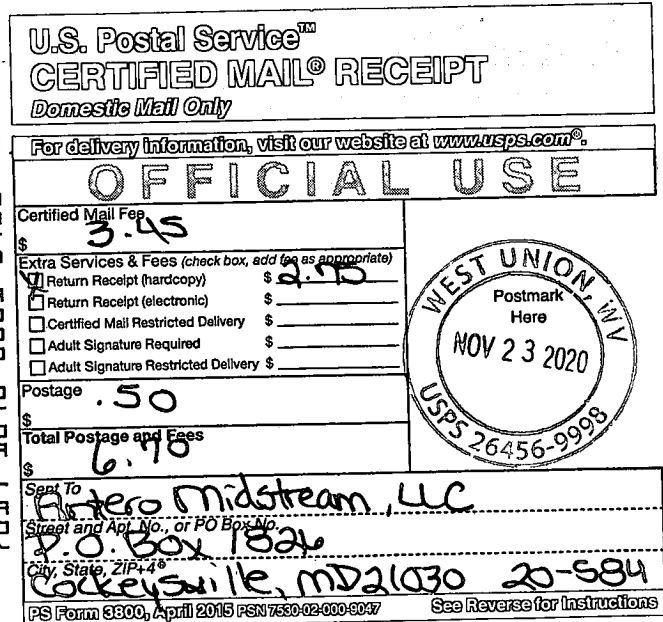 U.S. Postal Service™
CERTIFIED MAIL® RECEIPT
Domestic Mail Only
For delivery information, visit our website at www.usps.com®.
OFFICIAL USE
Certified Mail Fee
$ 3.45
Extra Services & Fees (check box, add fee as appropriate)
Return Receipt (hardcopy) $ 2.75
Return Receipt (electronic) $
Certified Mail Restricted Delivery $
Adult Signature Required $
Adult Signature Restricted Delivery $
Postage .50
$
Total Postage and Fees
$ 6.70
WEST UNION, WV
Postmark
Here
NOV 23 2020
USPS 26456-9998
Sent To
Antero Midstream, LLC
Street and Apt. No., or PO Box No.
P.O. Box 1826
City, State, ZIP+4®
Cockeysville, MD 21030 20-584
PS Form 3800, April 2015 PSN 7530-02-000-9047 See Reverse for Instructions